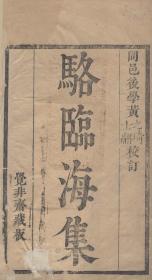 同邑後學黃之琦校訂
駱臨海集
覺非齋藏板